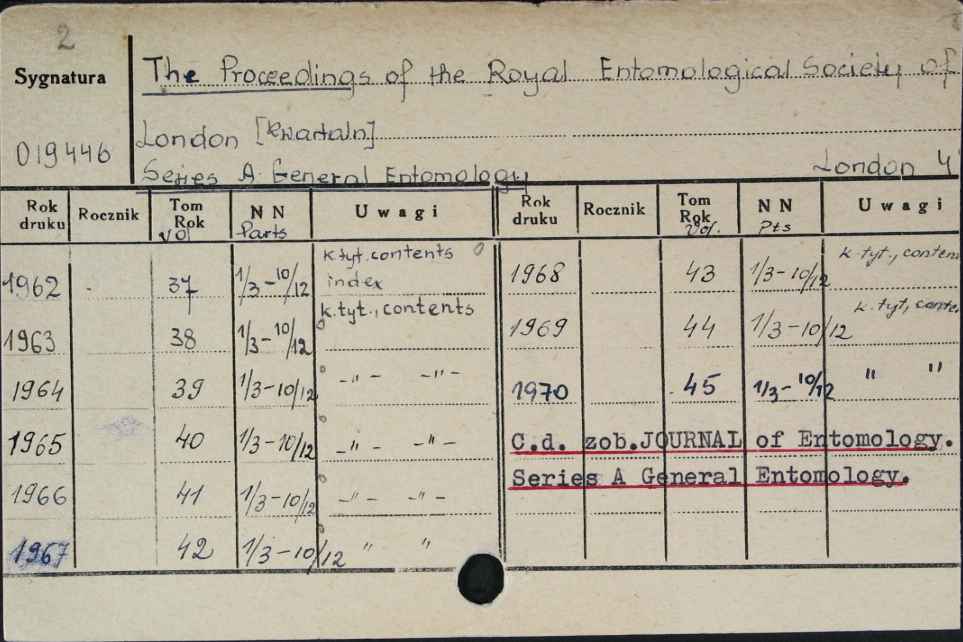 2
Sygnatura
The Proceedings of the Royal Entomological Society of
London [Kwartaln]
019446
Series A General Entomology London 4
Rok druku Rocznik Tom Rok Vol N N Parts Uwagi Rok druku Rocznik Tom Rok Vol. N N Pts Uwagi
1962 37 1/3-10/12 k.tyt. contents index 1968 43 1/3-10/12 k.tyt., conten
1963 38 1/3-10/12 k.tyt., contents 1969 44 1/3-10/12 k.tyt, conte
1964 39 1/3-10/12 -"- -"- 1970 45 1/3-10/12 " "
1965 40 1/3-10/12 -"- -"- C.d. zob. JOURNAL of Entomology.
1966 41 1/3-10/12 -"- -"- Series A General Entomology.
1967 42 1/3-10/12 " "